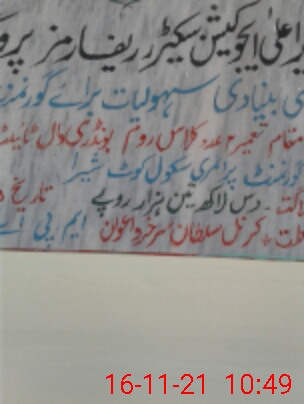 اعلیٰ ایجوکیشن سیکٹر ریفارمز پرو
بنیادی سہولیات برائے گورنمنٹ
مقام تعمیر عدد کلاس روم بونڈری وال ٹائلٹ
گورنمنٹ پرائمری سکول کوٹ شیرا
دس لاکھ تین ہزار روپے تاریخ
کرنل سلطان سرخرو اعوان ایم پی اے
16-11-21 10:49